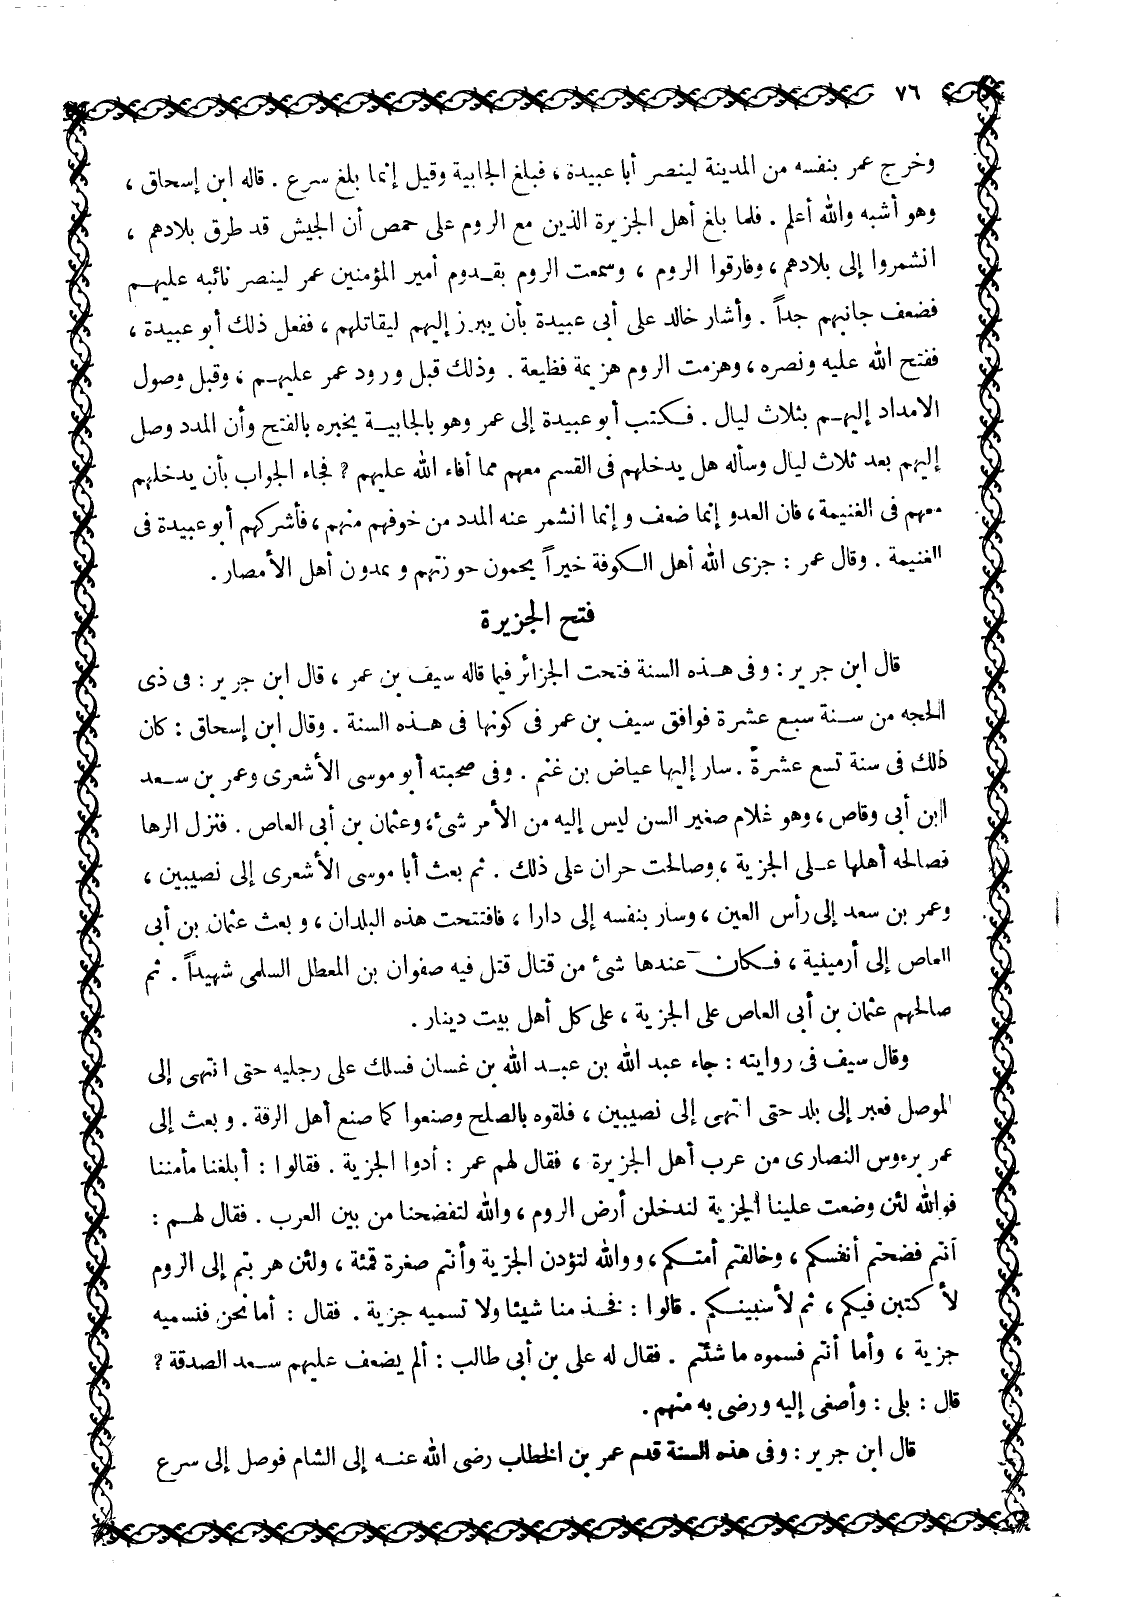 ٧٦
وخرج عمر بنفسه من المدينة لينصر أبا عبيدة ، فبلغ الجابية وقيل إنما بلغ سرع . قاله ابن إسحاق ،
وهو أشبه والله أعلم . فلما بلغ أهل الجزيرة الذين مع الروم على حمص أن الجيش قد طرق بلادهم ،
انشمروا إلى بلادهم ، وفارقوا الروم ، وسمعت الروم بقدوم أمير المؤمنين عمر لينصر نائبه عليهم
فضعف جانبهم جداً . وأشار خالد على أبى عبيدة بأن يبرز إليهم ليقاتلهم ، ففعل ذلك أبو عبيدة ،
ففتح الله عليه ونصره ، وهزمت الروم هزيمة فظيعة . وذلك قبل ورود عمر عليهم ، وقبل وصول
الامداد إليهم بثلاث ليال . فكتب أبو عبيدة إلى عمر وهو بالجابية يخبره بالفتح وأن المدد وصل
إليهم بعد ثلاث ليال وسأله هل يدخلهم فى القسم معهم مما أفاء الله عليهم ؟ فجاء الجواب بأن يدخلهم
معهم فى الغنيمة ، فان العدو إنما ضعف و إنما انشمر عنه المدد من خوفهم منهم ، فأشركهم أبو عبيدة فى
الغنيمة . وقال عمر : جزى الله أهل الكوفة خيراً يحمون حوزتهم و يمدون أهل الأمصار .
فتح الجزيرة
قال ابن جرير : وفى هذه السنة فتحت الجزائر فيما قاله سيف بن عمر ، قال ابن جرير : فى ذى
الحجه من سنة سبع عشرة فوافق سيف بن عمر فى كونها فى هذه السنة . وقال ابن إسحاق : كان
ذلك فى سنة تسع عشرة . سار إليها عياض بن غنم . وفى صحبته أبو موسى الأشعرى وعمر بن سعد
ابن أبى وقاص ، وهو غلام صغير السن ليس إليه من الأمر شئ ، وعثمان بن أبى العاص . فنزل الرها
فصالحه أهلها على الجزية ، وصالحت حران على ذلك . ثم بعث أبا موسى الأشعرى إلى نصيبين ،
وعمر بن سعد إلى رأس العين ، وسار بنفسه إلى دارا ، فافتتحت هذه البلدان ، و بعث عثمان بن أبى
العاص إلى أرمينية ، فكان عندها شئ من قتال قتل فيه صفوان بن المعطل السلمى شهيداً . ثم
صالحهم عثمان بن أبى العاص على الجزية ، على كل أهل بيت دينار .
وقال سيف فى روايته : جاء عبد الله بن عبد الله بن غسان فسلك على رجليه حتى انتهى إلى
الموصل فعبر إلى بلد حتى انتهى إلى نصيبين ، فلقوه بالصلح وصنعوا كما صنع أهل الرقة . و بعث إلى
عمر برءوس النصارى من عرب أهل الجزيرة ، فقال لهم عمر : أدوا الجزية . فقالوا : أبلغنا مأمننا
فوالله لئن وضعت علينا الجزية لندخلن أرض الروم ، والله لتفضحنا من بين العرب . فقال لهم :
أنتم فضحتم أنفسكم ، وخالفتم أمتكم ، ووالله لتؤدن الجزية وأنتم صغرة قمئة ، ولئن هربتم إلى الروم
لأكتبن فيكم ، ثم لأسبينكم . قالوا : فخذ منا شيئا ولا تسميه جزية . فقال : أما نحن فنسميه
جزية ، وأما أنتم فسموه ما شئتم . فقال له على بن أبى طالب : ألم يضعف عليهم سعد الصدقة ؟
قال : بلى : وأصغى إليه ورضى به منهم .
قال ابن جرير : وفى هذه السنة قدم عمر بن الخطاب رضى الله عنه إلى الشام فوصل إلى سرع